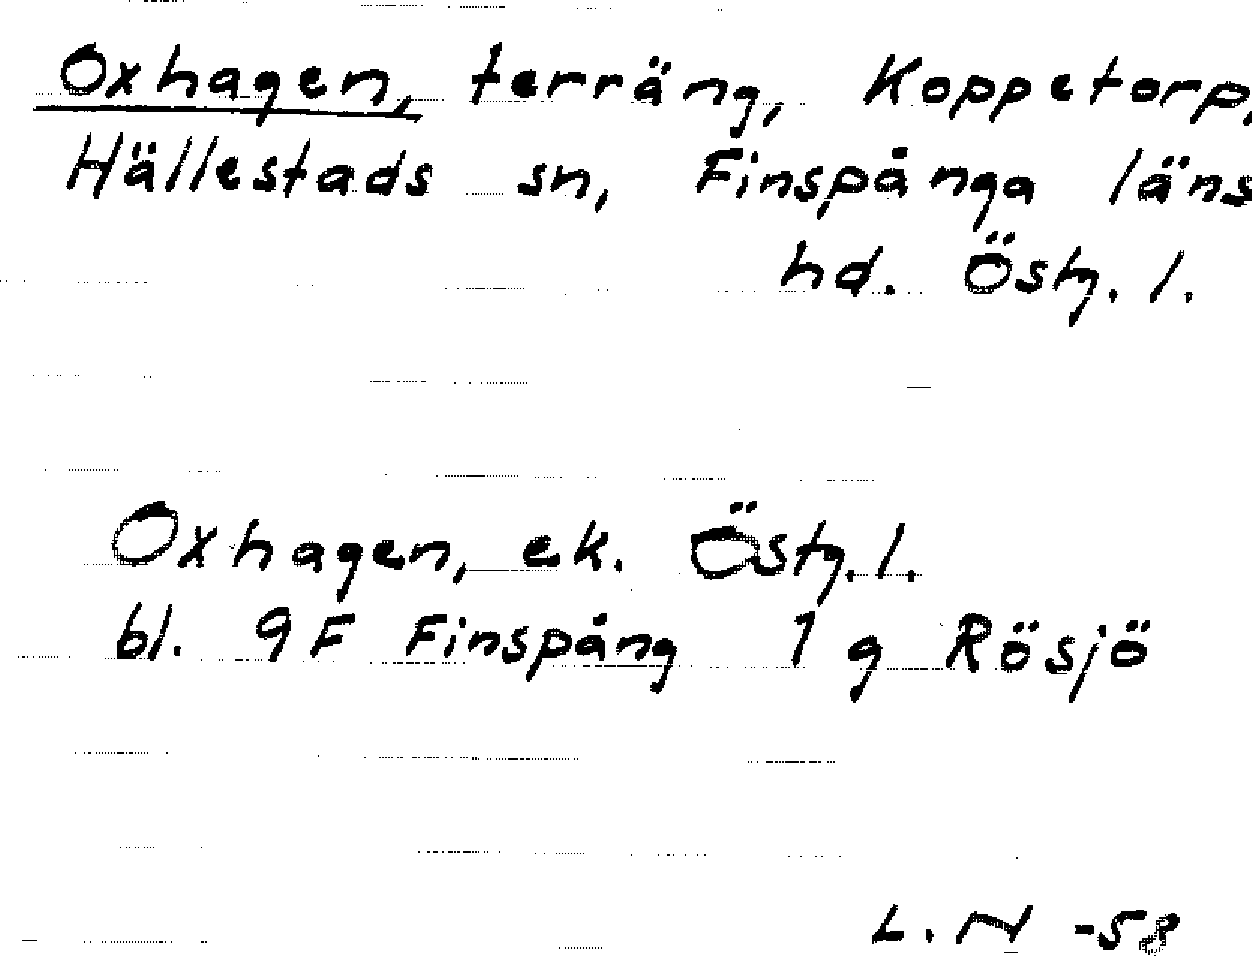 Oxhagen, terräng, Koppetorp,
Hällestads sn, Finspånga läns
hd. Östg. l.
Oxhagen, ek. Östg. l.
bl. 9F Finspång 1 g Rösjö
L. N -58